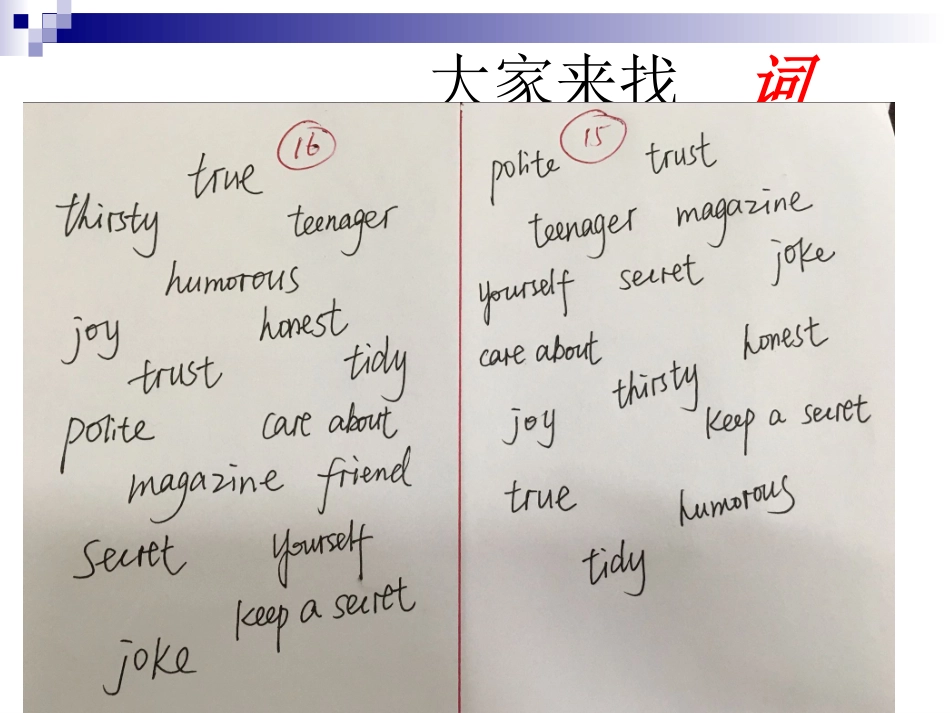 大家来找 词
16
true
thirsty teenager
humorous
joy honest
trust tidy
polite care about
magazine friend
secret yourself
keep a secret
joke
15
polite trust
teenager magazine
yourself secret joke
care about honest
thirsty
joy keep a secret
true humorous
tidy